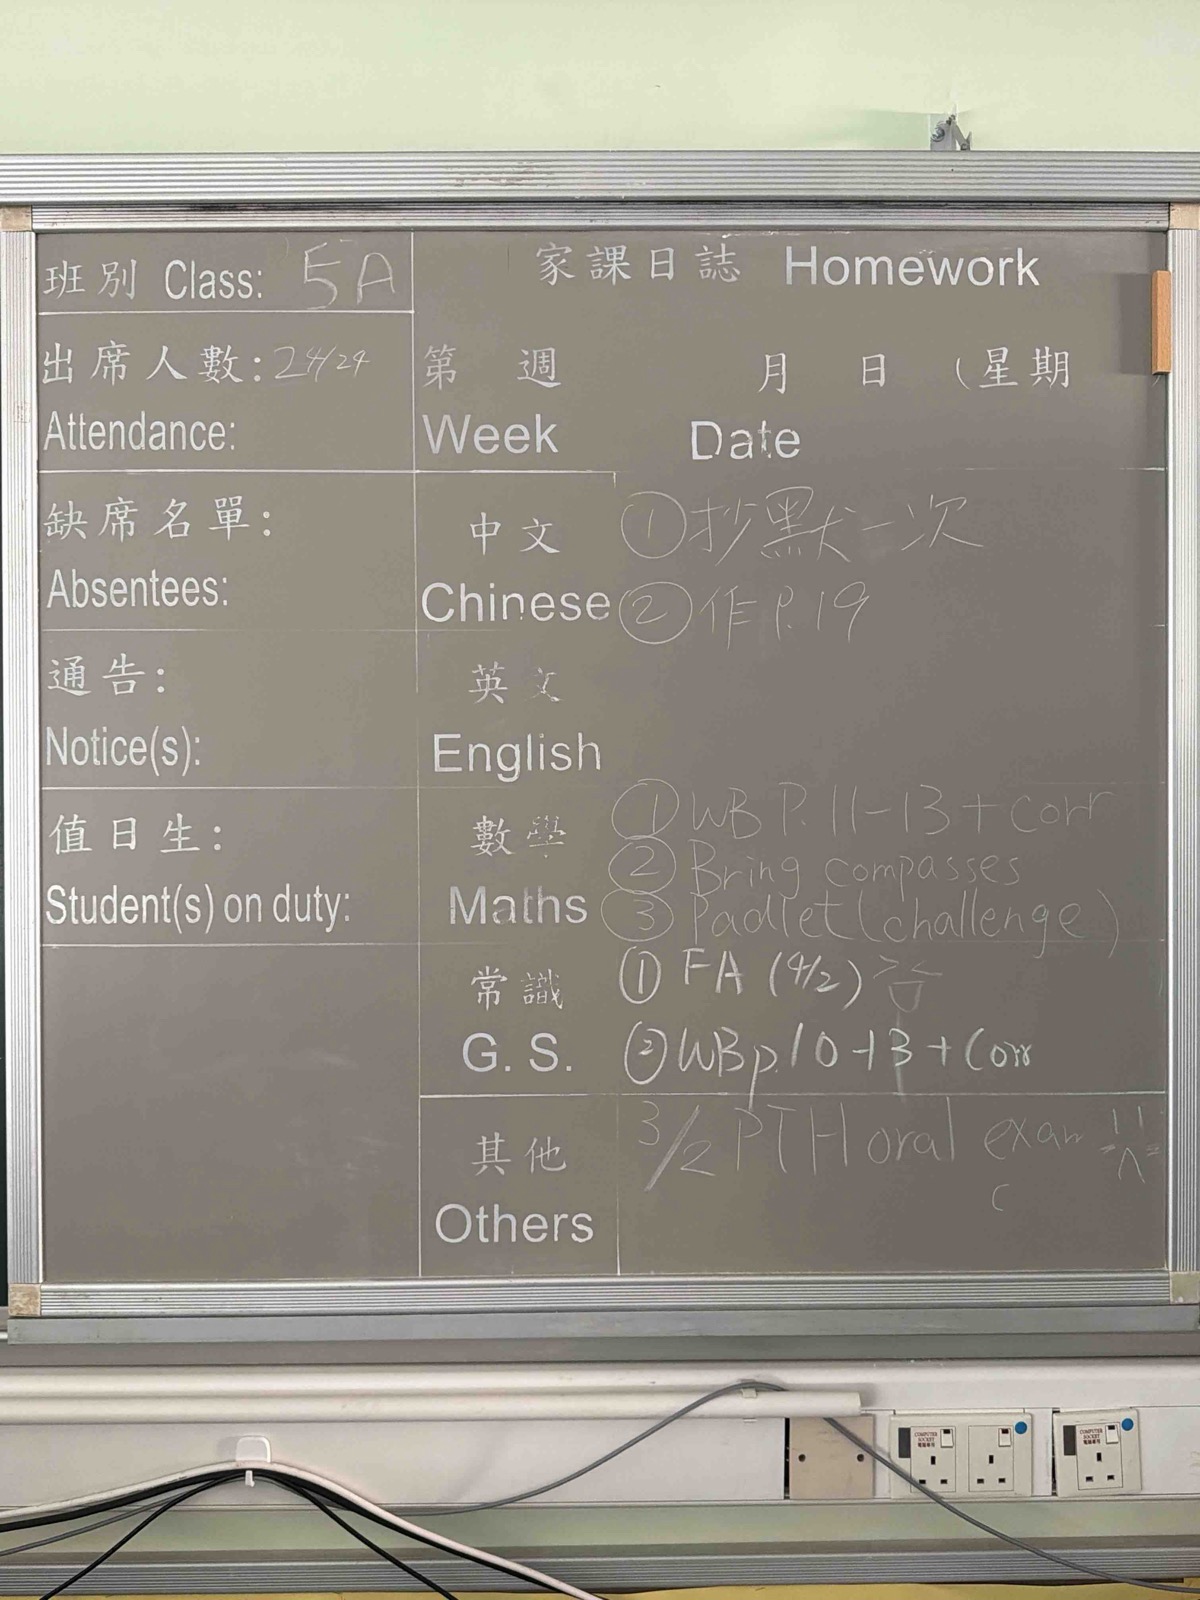 班別 Class: 5A
出席人數: 24/24
Attendance:
缺席名單:
Absentees:
通告:
Notice(s):
值日生:
Student(s) on duty:
家課日誌 Homework
第 週 月 日 (星期
Week Date
中文
Chinese
① 抄默一次
② 作 P.19
英文
English
數學
Maths
① WB P.11-13 + corr
② Bring compasses
③ Padlet (challenge)
常識
G. S.
① FA (4/2)
② WB p.10-13 + Corr
其他
Others
3/2 PTH oral exam
COMPUTER SOCKET
電腦專用
COMPUTER SOCKET
電腦專用